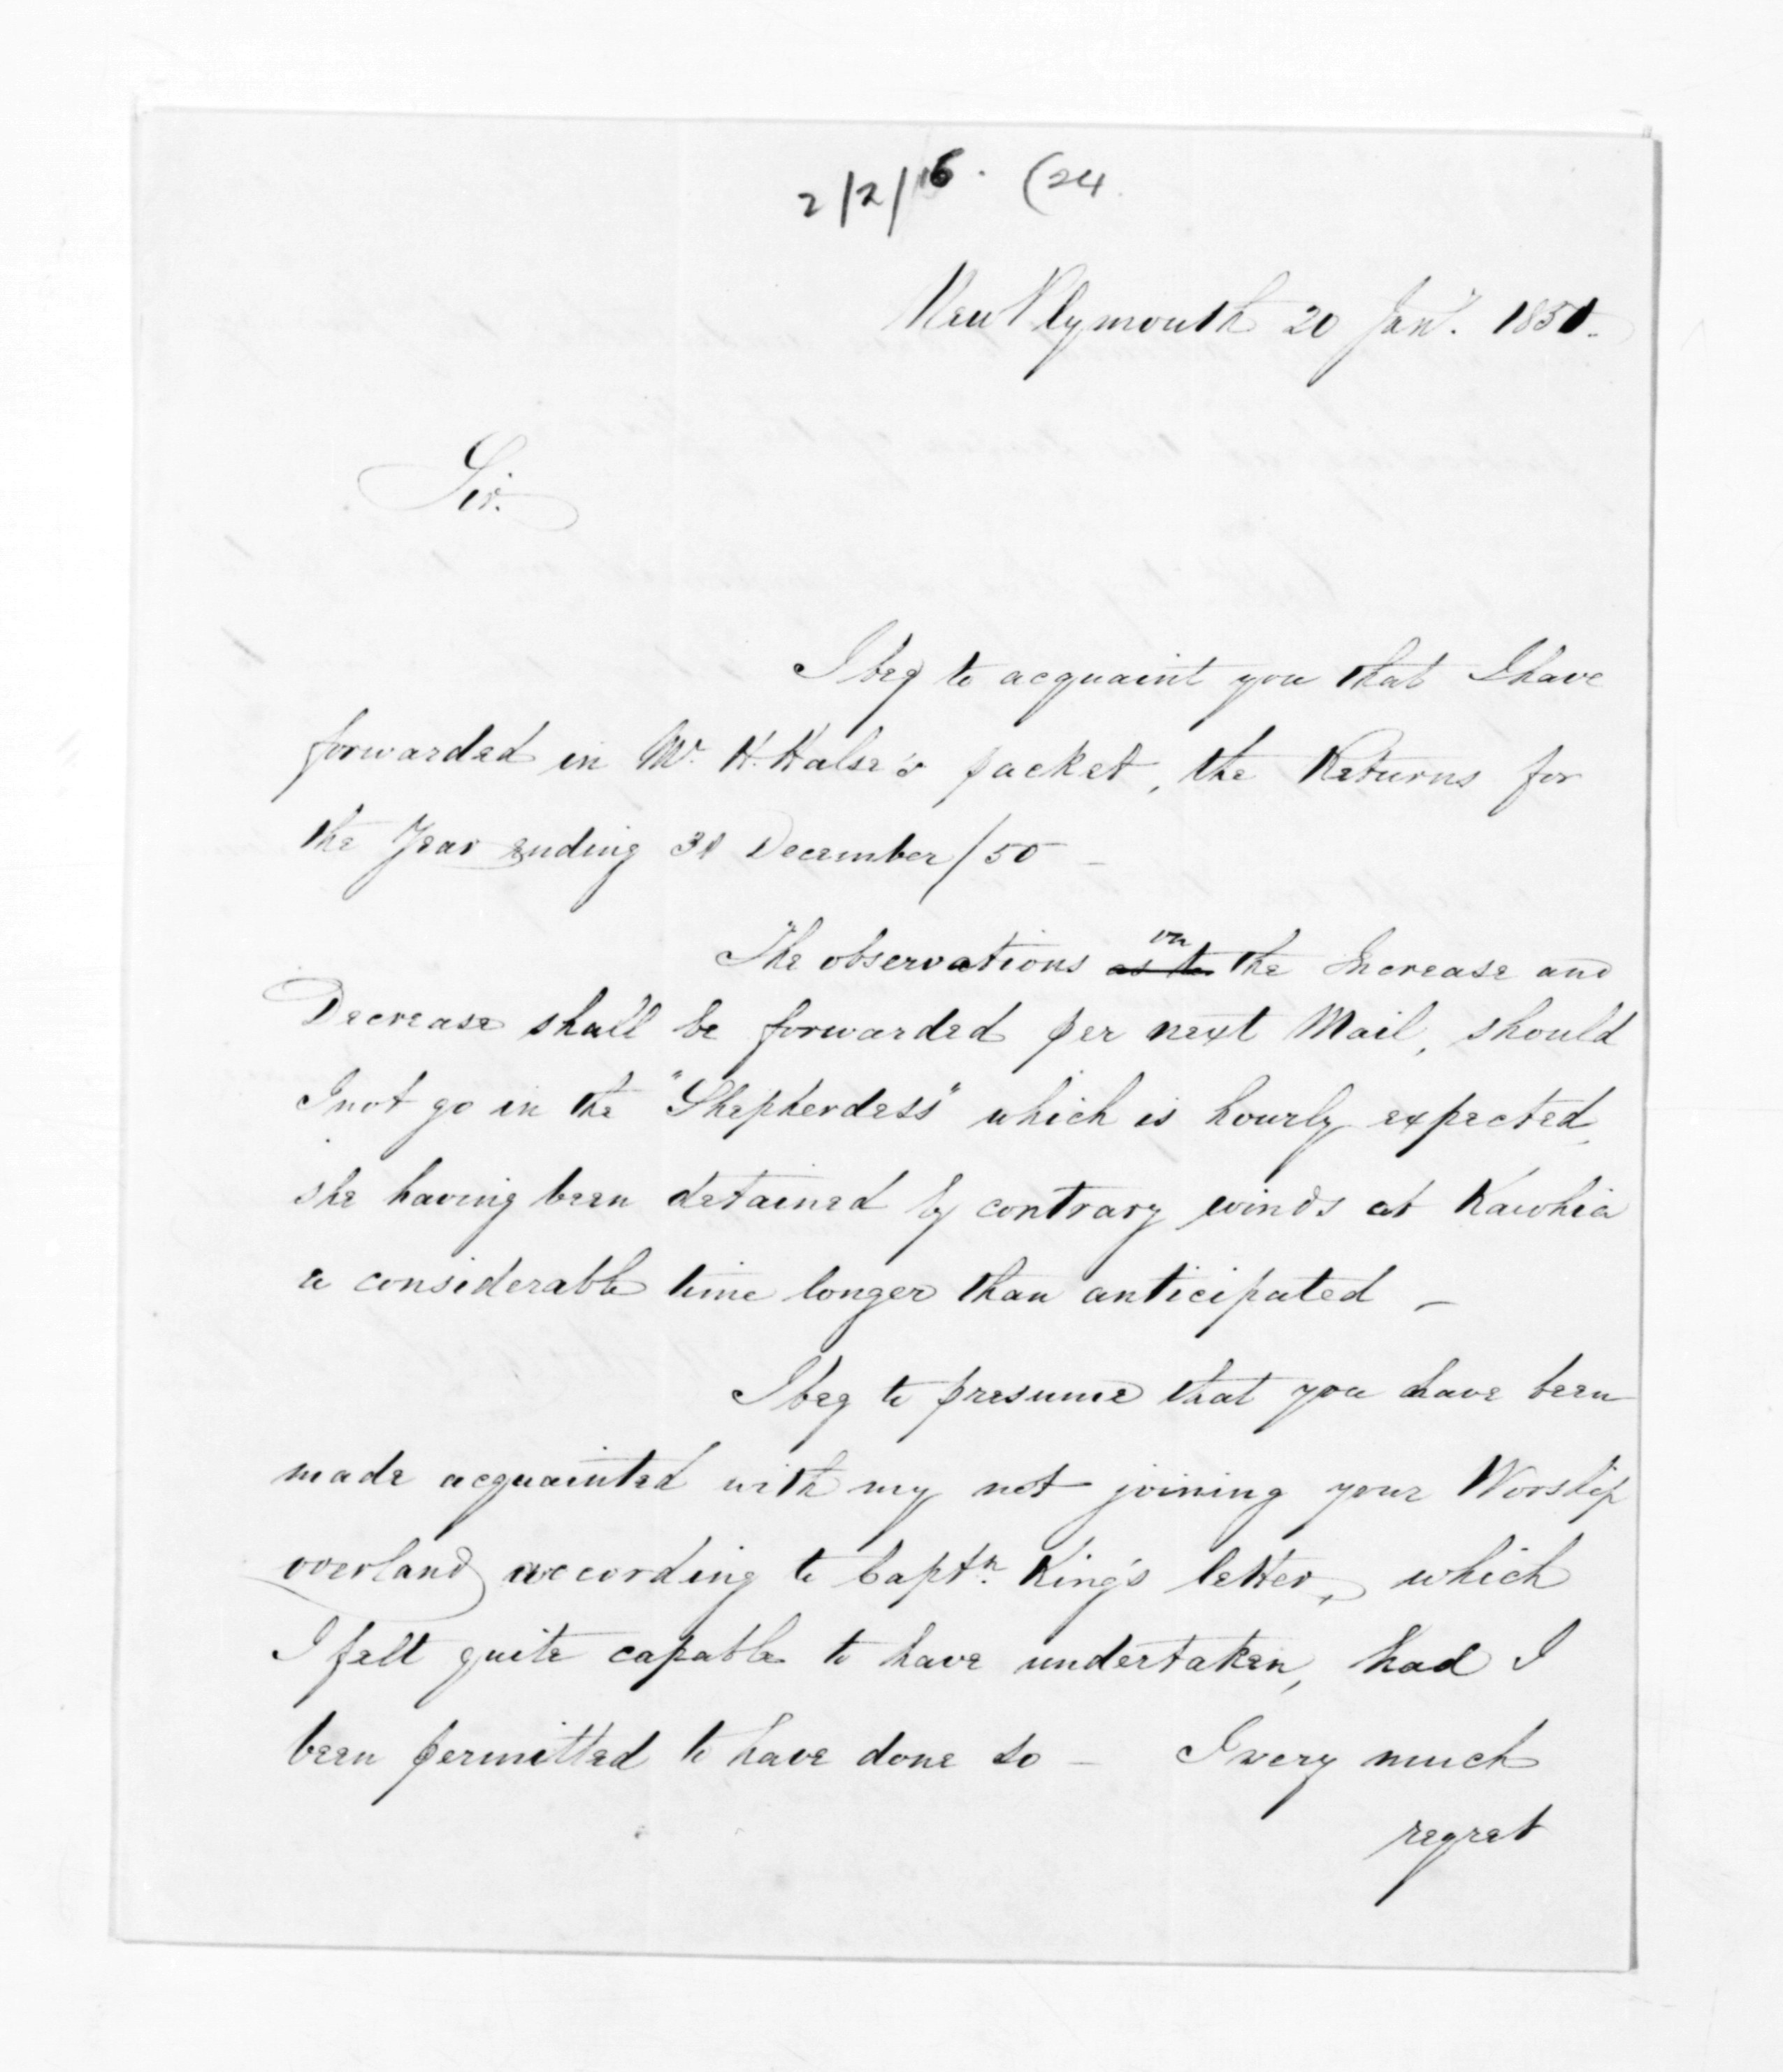 2/2/16. (24.
New Plymouth 20 Jany. 1851.
Sir.
I beg to acquaint you that I have
forwarded in Mr. H. Halse's packet, the Returns for
the Year ending 31 December/50 -
on
The observations as to the Increase and
Decrease shall be forwarded per next Mail, should
I not go in the "Shepherdess" which is hourly expected,
she having been detained by contrary winds at Kawhia
a considerable time longer than anticipated -
I beg to presume that you have been
made acquainted with my not joining your Worship
overland according to Captn. King's letter, which
I felt quite capable to have undertaken, had I
been permitted to have done so - I very much
regret